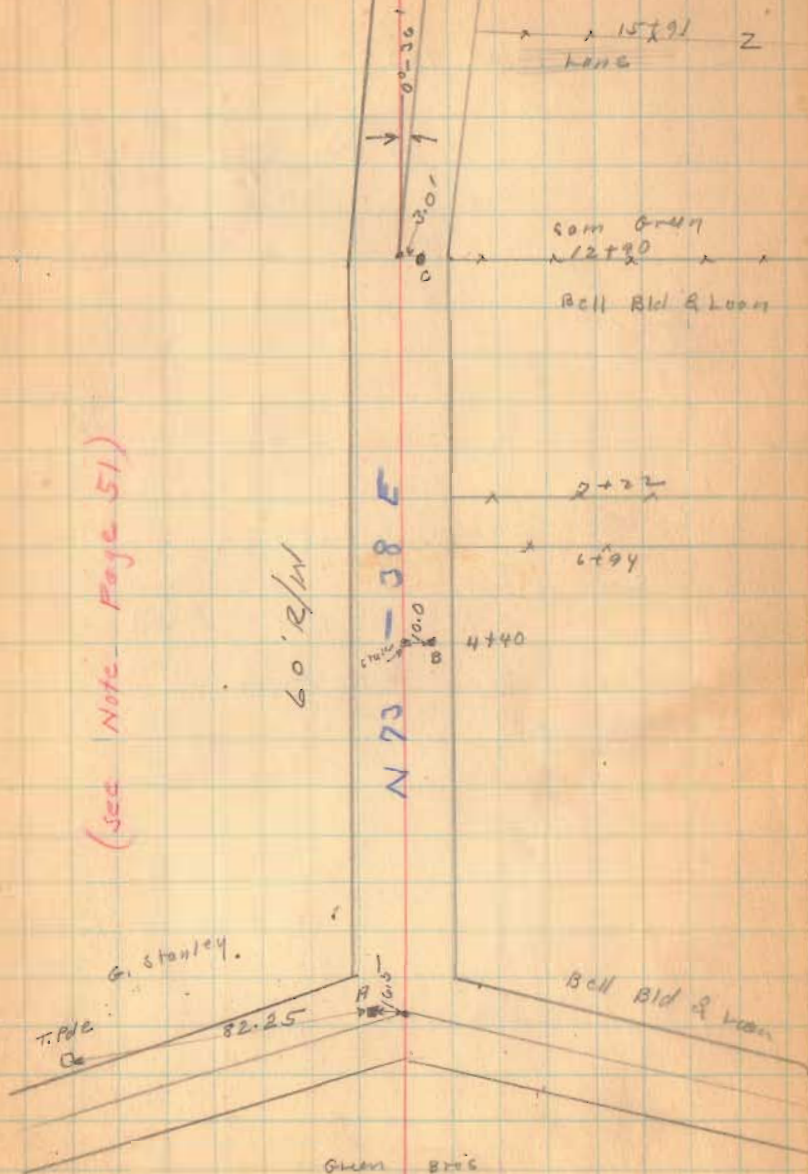 15+91 Z
Lane
0°-36'
3.01
Sam Green
12+90
C
Bell Bld & Loan
7+22
6+94
(See Note Page 51)
60' R/W
N 73 - 38 E
10.0
B
4+40
G. Stanley.
A
16.5
82.25
T. Pole
Bell Bld & Loan
Green Bros